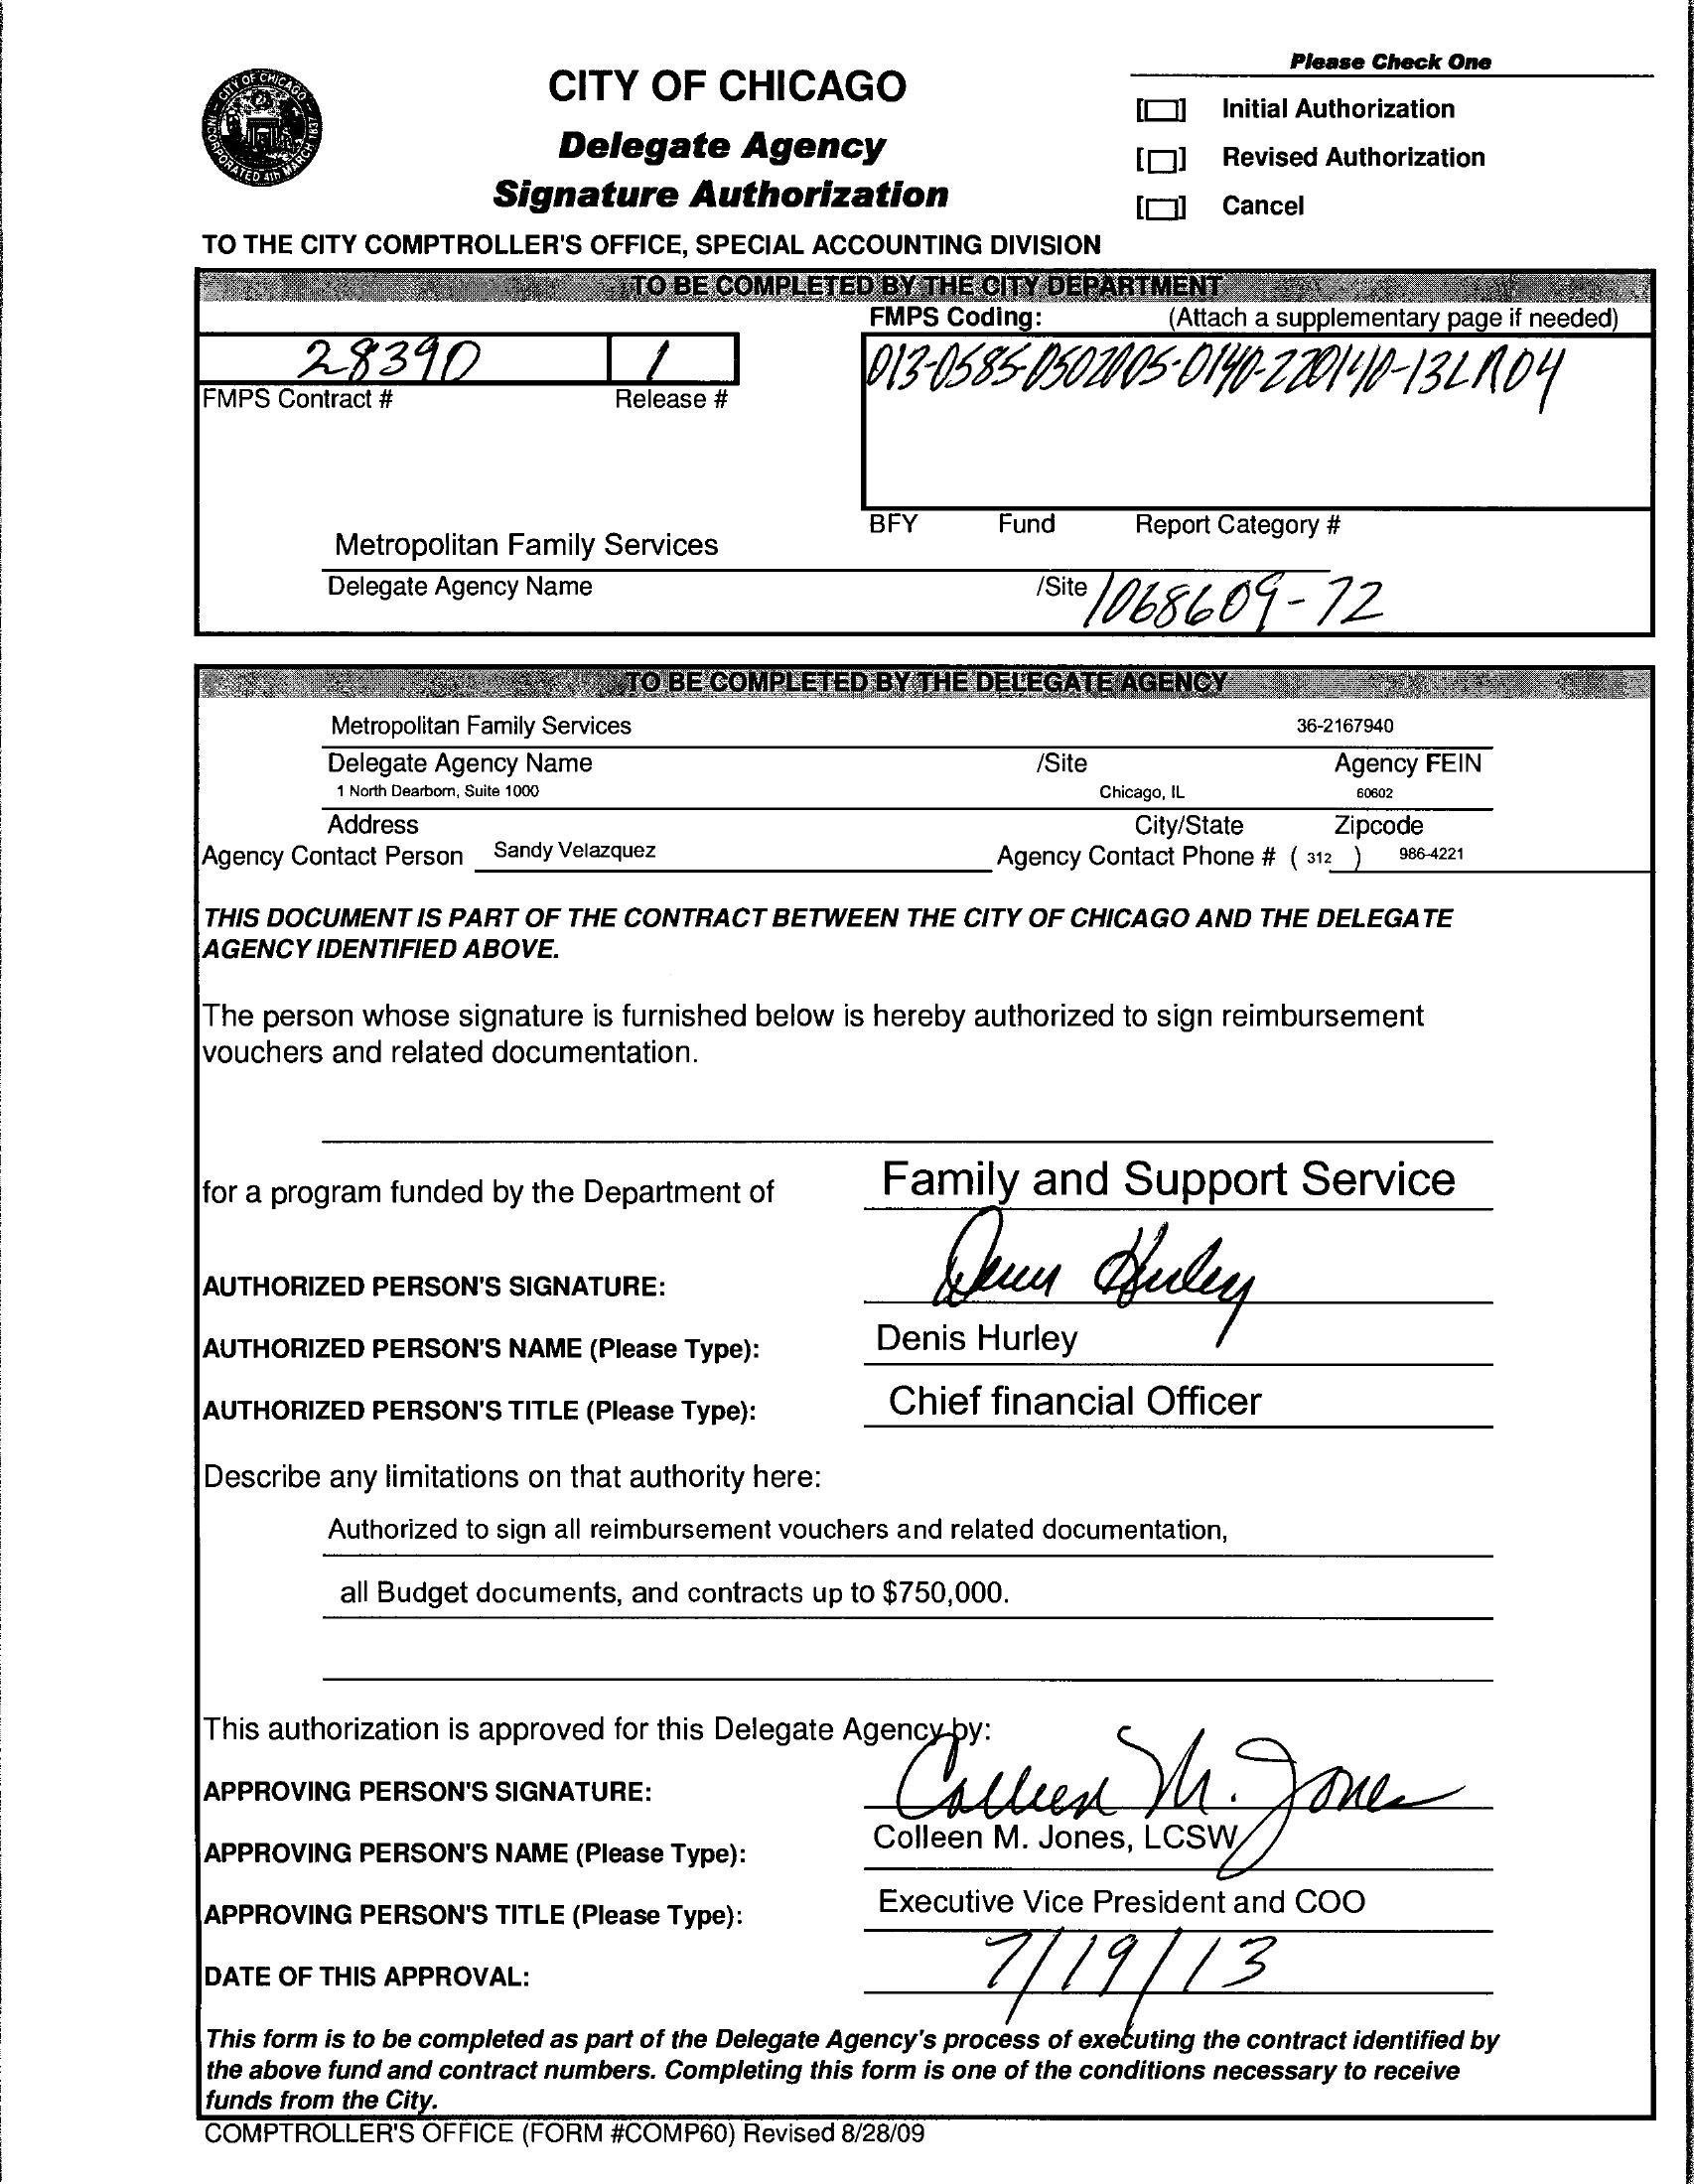 CITY OF CHICAGO
INCORPORATED 4th MARCH 1837
CITY OF CHICAGO
Delegate Agency
Signature Authorization
Please Check One
[☐] Initial Authorization
[☐] Revised Authorization
[☐] Cancel
TO THE CITY COMPTROLLER'S OFFICE, SPECIAL ACCOUNTING DIVISION
TO BE COMPLETED BY THE CITY DEPARTMENT
FMPS Coding: (Attach a supplementary page if needed)
28390 1
FMPS Contract # Release #
013-0585-0502005-0140-220140-13LR04
BFY Fund Report Category #
Metropolitan Family Services
Delegate Agency Name /Site 1068609-72
TO BE COMPLETED BY THE DELEGATE AGENCY
Metropolitan Family Services 36-2167940
Delegate Agency Name /Site Agency FEIN
1 North Dearborn, Suite 1000 Chicago, IL 60602
Address City/State Zipcode
Agency Contact Person Sandy Velazquez Agency Contact Phone # ( 312 ) 986-4221
THIS DOCUMENT IS PART OF THE CONTRACT BETWEEN THE CITY OF CHICAGO AND THE DELEGATE
AGENCY IDENTIFIED ABOVE.
The person whose signature is furnished below is hereby authorized to sign reimbursement
vouchers and related documentation.
for a program funded by the Department of Family and Support Service
AUTHORIZED PERSON'S SIGNATURE: Denis Hurley
AUTHORIZED PERSON'S NAME (Please Type): Denis Hurley
AUTHORIZED PERSON'S TITLE (Please Type): Chief financial Officer
Describe any limitations on that authority here:
Authorized to sign all reimbursement vouchers and related documentation,
all Budget documents, and contracts up to $750,000.
This authorization is approved for this Delegate Agency by:
APPROVING PERSON'S SIGNATURE: Colleen M. Jones
APPROVING PERSON'S NAME (Please Type): Colleen M. Jones, LCSW
APPROVING PERSON'S TITLE (Please Type): Executive Vice President and COO
DATE OF THIS APPROVAL: 7/19/13
This form is to be completed as part of the Delegate Agency's process of executing the contract identified by
the above fund and contract numbers. Completing this form is one of the conditions necessary to receive
funds from the City.
COMPTROLLER'S OFFICE (FORM #COMP60) Revised 8/28/09